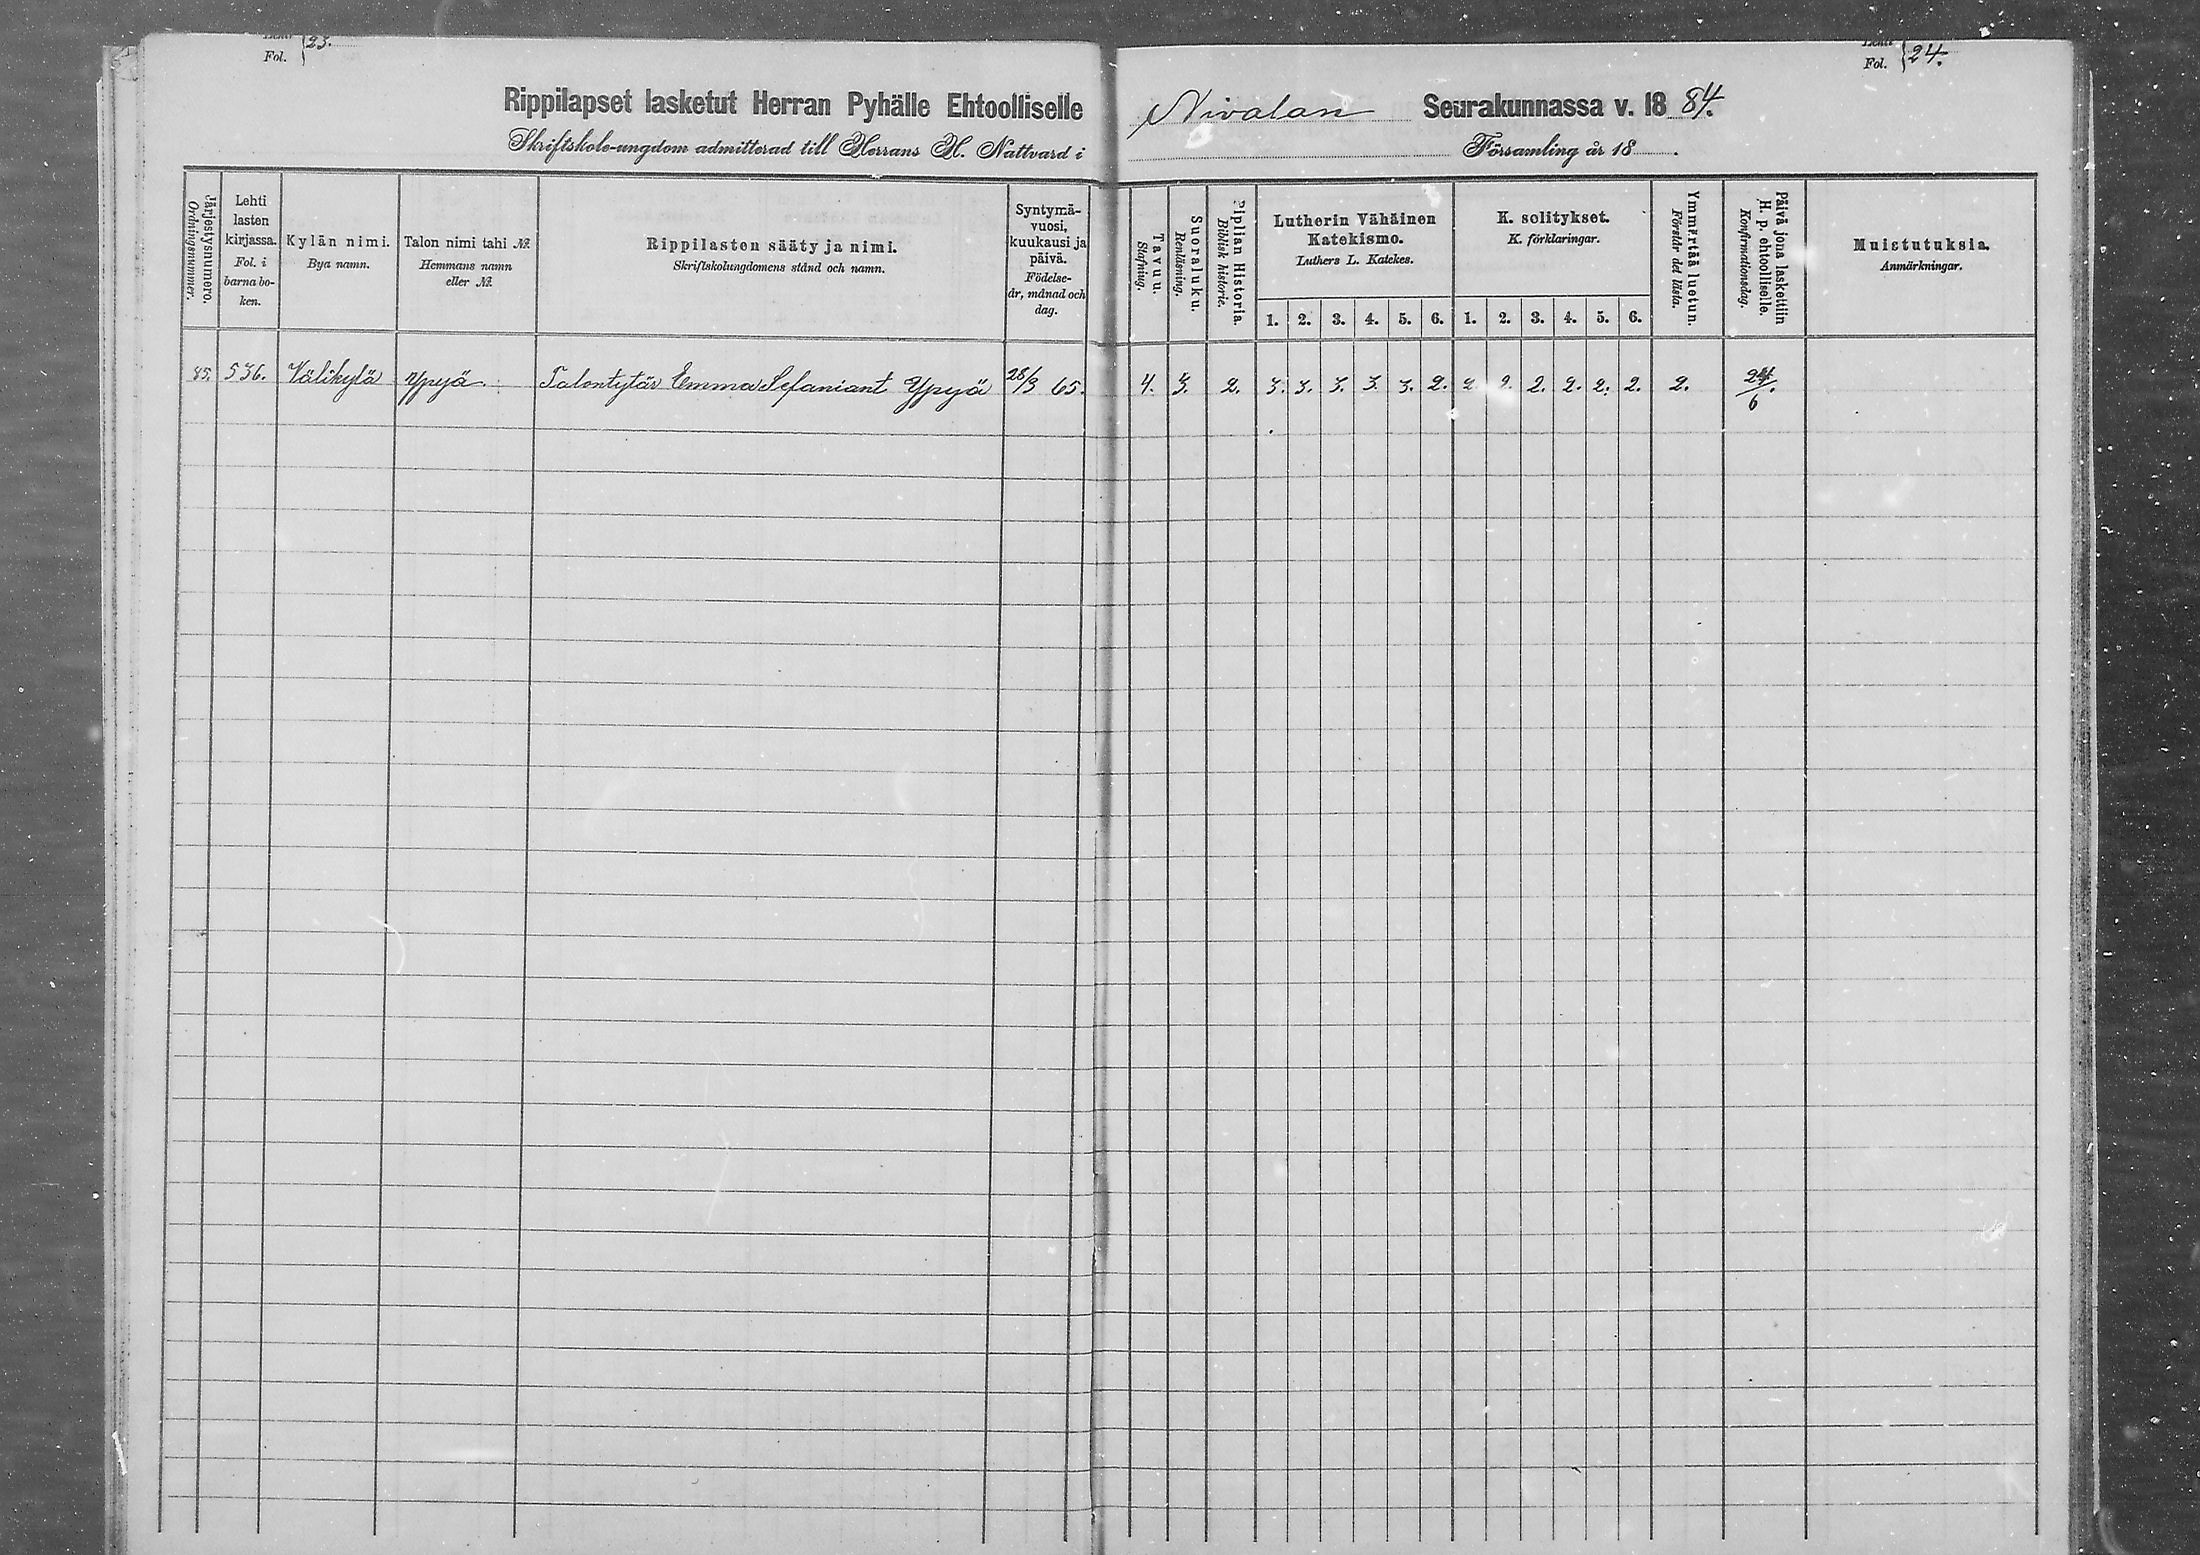 Lehti
Fol. } 23.
Lehti
Fol. } 24.
Rippilapset lasketut Herran Pyhälle Ehtoolliselle Nivalan Seurakunnassa v. 18 84.
Skriftskole-ungdom admitterad till Herrans H. Nattvard i Församling år 18 .
Järjestysnumero.
Ordningsnummer.
Lehti
lasten
kirjassa.
Fol. i
barna bo-
ken.
Kylän nimi.
Bya namn.
Talon nimi tahi №
Hemmans namn
eller №.
Rippilasten sääty ja nimi.
Skriftskolungdomens stånd och namn.
Syntymä-
vuosi,
kuukausi ja
päivä.
Födelse-
år, månad och
dag.
Tavuu.
Stafning.
Suoraluku.
Renläsning.
Piplian Historia.
Biblisk historie.
Lutherin Vähäinen
Katekismo.
Luthers L. Katekes.
1. 2. 3. 4. 5. 6.
K. selitykset.
K. förklaringar.
1. 2. 3. 4. 5. 6.
Ymmärtää luetun.
Förstår det lästa.
Päivä jona laskettiin
H. p. ehtoolliselle.
Konfirmationsdag.
Muistutuksia.
Anmärkningar.
85. 536. Välikylä Ypyä Talontytär Emma Sefaniant. Ypyä 28/3 65. 4. 3. 2. 3. 3. 3. 3. 3. 2. 2. 2. 2. 2. 2. 2. 2. 24/6.